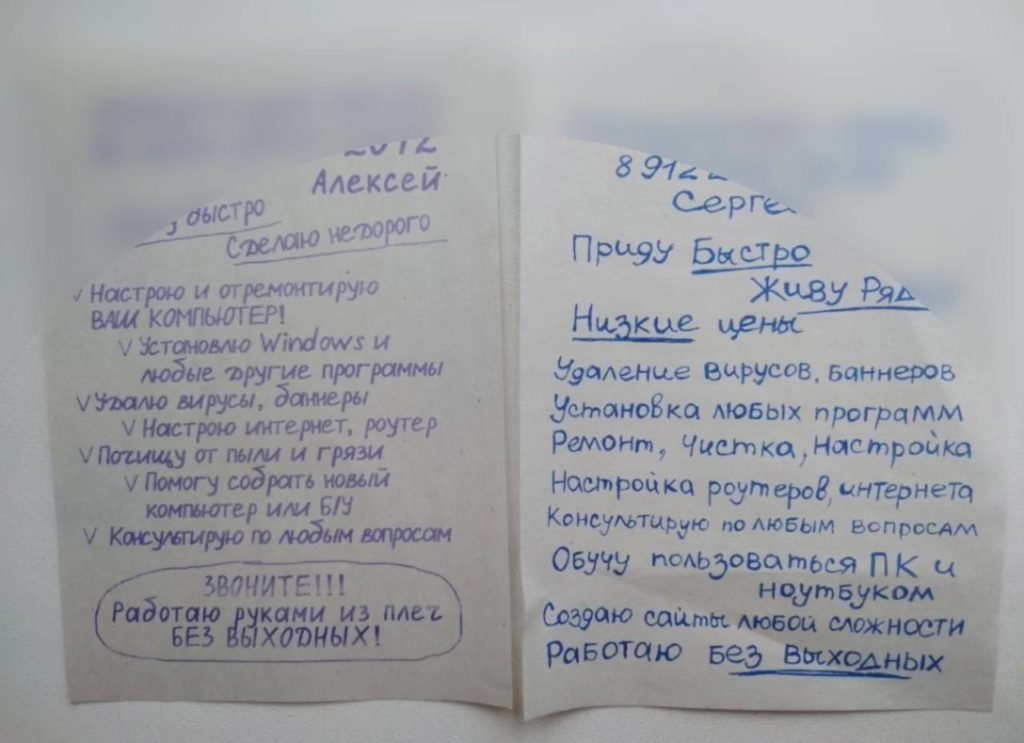 Алексей
быстро
Сделаю недорого
✓ Настрою и отремонтирую
ВАШ КОМПЬЮТЕР!
✓ Установлю Windows и
любые другие программы
✓ Удалю вирусы, баннеры
✓ Настрою интернет, роутер
✓ Почищу от пыли и грязи
✓ Помогу собрать новый
компьютер или Б/У
✓ Консультирую по любым вопросам
ЗВОНИТЕ!!!
Работаю руками из плеч
БЕЗ ВЫХОДНЫХ!
8 912
Приду Быстро
Живу
Низкие цены
Удаление вирусов, баннеров
Установка любых программ
Ремонт, Чистка, Настройка
Настройка роутеров, интернета
Консультирую по любым вопросам
Обучу пользоваться ПК и
ноутбуком
Создаю сайты любой сложности
Работаю без выходных